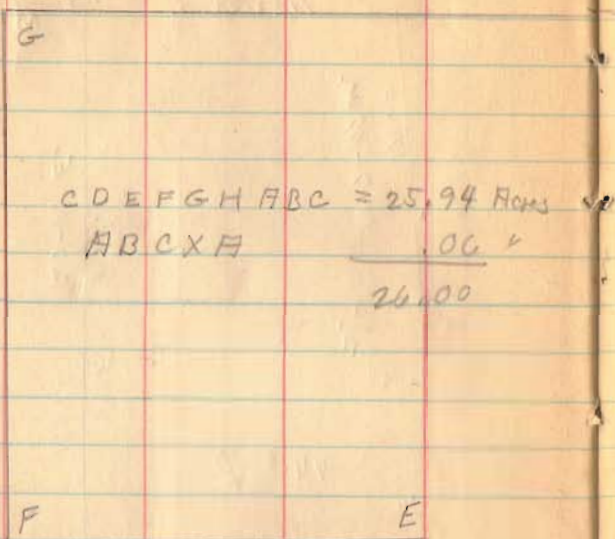 G
C D E F G H A B C = 25.94 Acres
A B C X A .06 "
26.00
F E